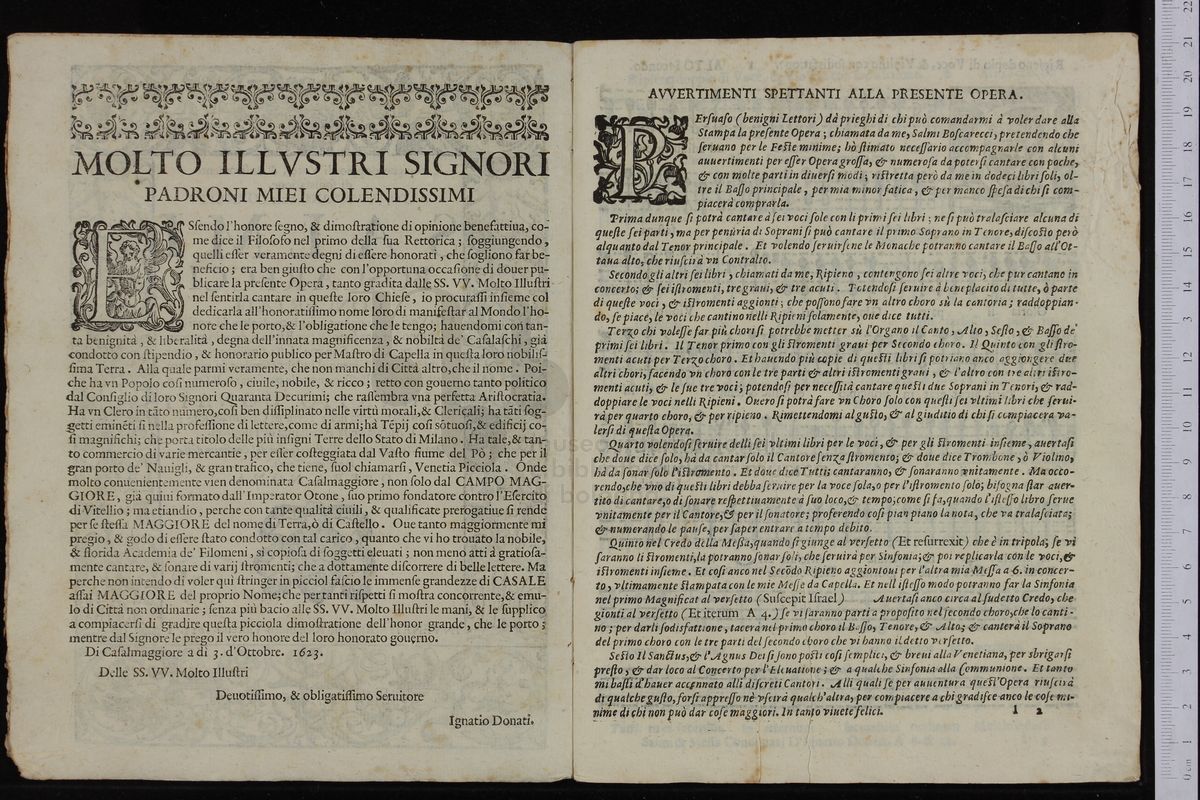 MOLTO ILLVSTRI SIGNORI
PADRONI MIEI COLENDISSIMI
ESsendo l'honore segno, & dimostratione di opinione benefattiua, co-
me dice il Filosofo nel primo della sua Rettorica; soggiungendo,
quelli esser veramente degni di essere honorati, che sogliono far be-
neficio; era ben giusto che con l'opportuna occasione di douer pu-
blicare la presente Opera, tanto gradita dalle SS. VV. Molto Illustri
nel sentirla cantare in queste loro Chiese, io procurassi insieme col
dedicarla all'honoratissimo nome loro di manifestar al Mondo l'ho-
nore che le porto, & l'obligatione che le tengo; hauendomi con tan-
ta benignità, & liberalità, degna dell'innata magnificenza, & nobiltà de' Casalaschi, già
condotto con stipendio, & honorario publico per Mastro di Capella in questa loro nobilis-
sima Terra. Alla quale parmi veramente, che non manchi di Città altro, che il nome. Poi-
che ha vn Popolo così numeroso, ciuile, nobile, & ricco; retto con gouerno tanto politico
dal Consiglio di loro Signori Quaranta Decurimi; che rassembra vna perfetta Aristocratia.
Ha vn Clero in tāto número, così ben dissiplinato nelle virtù morali, & Clericali; ha tāti sog-
getti eminēti sì nella professione di lettere, come di armi; hà Tēpij così sōtuosi, & edificij co-
sì magnifichi; che porta titolo delle più insigni Terre dello Stato di Milano. Ha tale, & tan-
to commercio di varie mercantie, per esser costeggiata dal Vasto fiume del Pò; che per il
gran porto de' Nauigli, & gran trafico, che tiene, suol chiamarsi, Venetia Picciola. Onde
molto conuenientemente vien denominata Casalmaggiore, non solo dal CAMPO MAG-
GIORE, già quiui formato dall'Imperator Otone, suo primo fondatore contro l'Esercito
di Vitellio; ma etiandio, perche con tante qualità ciuili, & qualificate prerogatiue si rende
per se stessa MAGGIORE del nome di Terra, ò di Castello. Oue tanto maggiormente mi
pregio, & godo di essere stato condotto con tal carico, quanto che vi ho trouato la nobile,
& florida Academia de' Filomeni, sì copiosa di soggetti eleuati; non meno atti à gratiosa-
mente cantare, & sonare di varij stromenti; che a dottamente discorrere di belle lettere. Ma
perche non intendo di voler quì stringer in picciol fascio le immense grandezze di CASALE
assai MAGGIORE del proprio Nome; che per tanti rispetti si mostra concorrente, & emu-
lo di Città non ordinarie; senza più bacio alle SS. VV. Molto Illustri le mani, & le supplico
a compiacersi di gradire questa picciola dimostratione dell'honor grande, che le porto;
mentre dal Signore le prego il vero honore del loro honorato gouerno.
Di Casalmaggiore a dì 3. d'Ottobre. 1623.
Delle SS. VV. Molto Illustri
Deuotissimo, & obligatissimo Seruitore
Ignatio Donati.
AVVERTIMENTI SPETTANTI ALLA PRESENTE OPERA.
PErsuaso (benigni Lettori) dà prieghi di chi può comandarmi à voler dare alla
Stampa la presente Opera; chiamata da me, Salmi Boscarecci, pretendendo che
seruano per le Feste minime; hò stimato necessario accompagnarle con alcuni
auuertimenti per esser Opera grossa, & numerosa da potersi cantare con poche,
& con molte parti in diuersi modi; ristretta però da me in dodeci libri soli, ol-
tre il Basso principale, per mia minor fatica, & per manco spesa di chi si com-
piacerà comprarla.
Prima dunque si potrà cantare à sei voci sole con li primi sei libri; ne si può tralasciare alcuna di
queste sei parti, ma per penúria di Soprani si può cantare il primo Soprano in Tenore, discosto però
alquanto dal Tenor principale. Et volendo seruirsene le Monache potranno cantare il Basso all'Ot-
taua alto, che riuscirà vn Contralto.
Secondo gli altri sei libri, chiamati da me, Ripieno, contengono sei altre voci, che pur cantano in
concerto; & sei istromenti, tre graui, & tre acuti. Potendosi seruire à beneplacito di tutte, ò parte
di queste voci, & istromenti aggionti; che possono fare vn altro choro sù la cantoria; raddoppian-
do, se piace, le voci che cantino nelli Ripieni solamente, oue dice tutti.
Terzo chi volesse far più chori si potrebbe metter sù l'Organo il Canto, Alto, Sesto, & Basso de'
primi sei libri. Il Tenor primo con gli stromenti graui per Secondo choro. Il Quinto con gli stro-
menti acuti per Terzo choro. Et hauendo più copie di questi libri si potriano anco aggiongere due
altri chori, facendo vn choro con le tre parti & altri istromenti graui, & l'altro con tre altri istro-
menti acuti, & le sue tre voci; potendosi per necessità cantare questi due Soprani in Tenori, & rad-
doppiare le voci nelli Ripieni. Ouero si potrà fare vn Choro solo con questi sei vltimi libri che serui-
rà per quarto choro, & per ripieno. Rimettendomi al gusto, & al giuditio di chi si compiacera va-
lersi di questa Opera.
Quarto volendosi seruire delli sei vltimi libri per le voci, & per gli stromenti insieme, auertasi
che doue dice solo, hà da cantar solo il Cantore senza stromento; & doue dice Trombone, ò Violino,
hà da sonar solo l'istromento. Et doue dice Tutti; cantaranno, & sonaranno vnitamente. Ma occo-
rendo, che vno di questi libri debba seruire per la voce sola, o per l'istromento solo; bisogna star auer-
tito di cantare, o di sonare respettiuamente à suo loco, & tempo; come si fa, quando l'istesso libro serue
vnitamente per il Cantore, & per il sonatore; proferendo così pian piano la nota, che va tralasciata;
& numerando le pause, per saper entrare a tempo debito.
Quinto nel Credo della Messa, quando si giunge al versetto (Et resurrexit) che è in tripola; se vi
saranno li stromenti, la potranno sonar soli, che seruirà per Sinfonia; & poi replicarla con le voci, &
istromenti insieme. Et così anco nel Secōdo Ripieno aggiontoui per l'altra mia Messa a 6. in concer-
to, vltimamente stampata con le mie Messe da Capella. Et nell istesso modo potranno far la Sinfonia
nel primo Magnificat al versetto (Suscepit Israel) Auertasi anco circa al sudetto Credo, che
gionti al versetto (Et iterum A 4.) se vi saranno parti a proposito nel secondo choro, che lo canti-
no; per darli sodisfattione, tacerà nel primo choro il Basso, Tenore, & Alto; & canterà il Soprano
del primo choro con le tre parti del secondo choro che vi hanno il detto versetto.
Sesto Il Sanctus, & l'Agnus Dei si sono posti così semplici, & breui alla Venetiana, per sbrigarsi
presto, & dar loco al Concerto per l'Eleuatione; & a qualche Sinfonia alla Communione. Et tanto
mi basti d'hauer accennato alli discreti Cantori. Alli quali se per auuentura quest'Opera riuscirà
di qualche gusto, forsi appresso nè vscirà qualch'altra, per compiacere a chi gradisce anco le cose mi-
nime di chi non può dar cose maggiori. In tanto viuete felici.
1 2